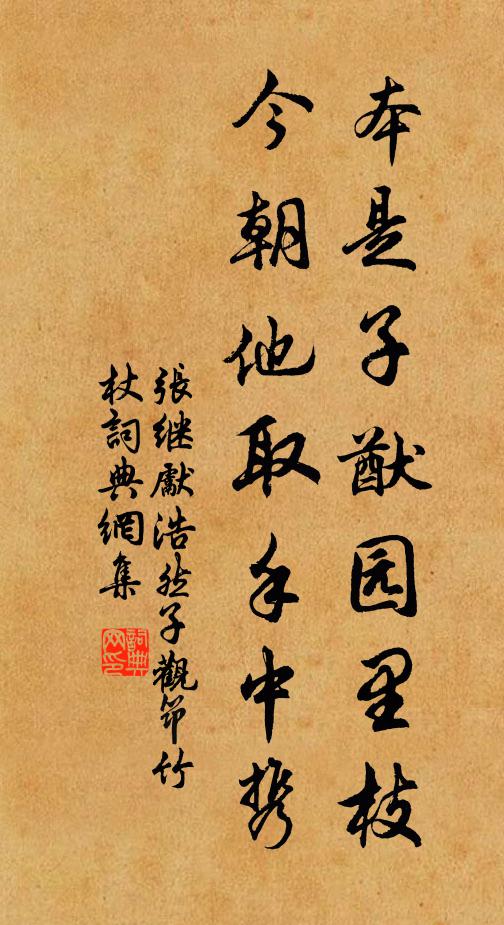 本是子猷园里枝
今朝他取手中携
張継獻浩然子觀筇竹
杖詞典網集
詞典网印